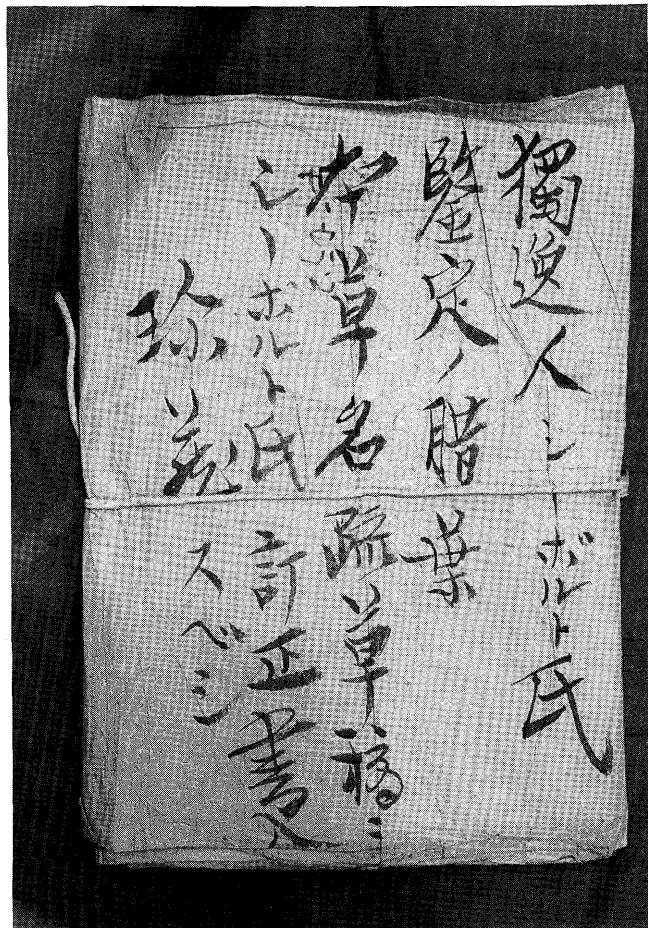 獨逸人シーボルト氏
鑒定ノ腊葉
本草名疏草稿ニ
シーボルト氏訂正書入
珍蔵スベシ